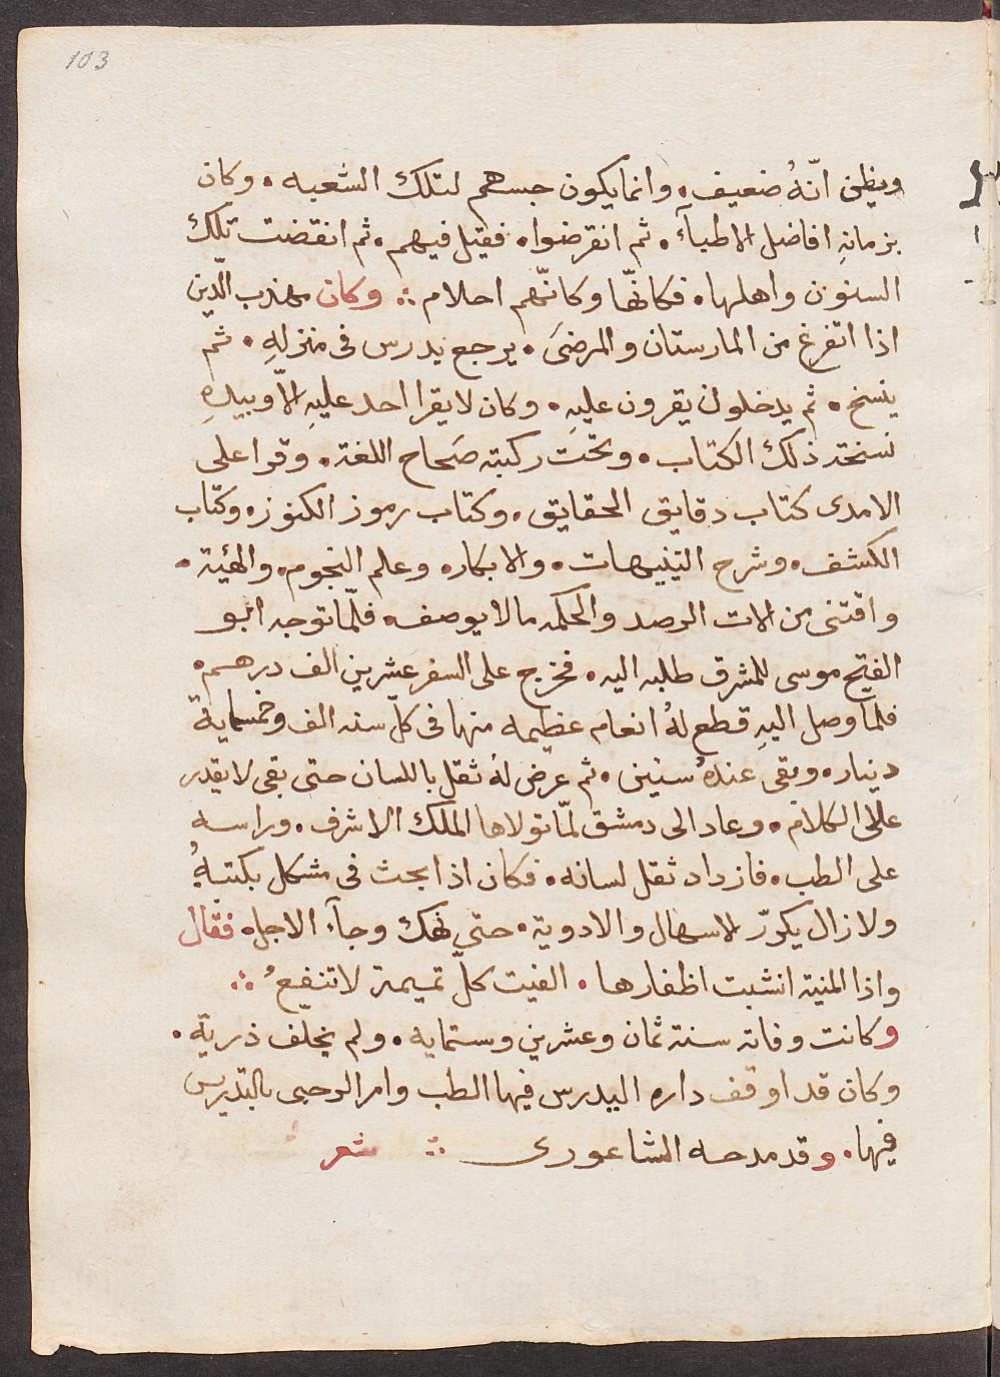 103
ويظن انّهُ ضعيف. وانما يكون جسهم لتلك الشعبه. وكان
بزمانهِ افاضل الاطباء. ثم انقرضوا. فقيل فيهم. ثم انقضت تلك
السنون واهلها. فكانها وكانّهم احلام ∴ وكان مهذب الدّين
اذا اتفرغ من المارستان والمرضىَ. يرجع يدرس فى منزلهِ. ثم
ينسخ. ثم يدخلون يقرون عليهِ. وكان لا يقرا احد عليهِ الاّ وبيدهِ
نسخة ذلك الكتاب. وتحت ركبته صَحاح اللغة. وقرا على
الامدى كتاب دقايق الحقايق. وكتاب رموز الكنوز. وكتاب
الكشف. وشرح التنبيهات. والابكار. وعلم النجوم. والهئية.
واقتنى من الات الرصد والحكمه مالا يوصف. فلمّا توجه ابو
الفتح موسى للمشرق طلبه اليه. فخرج على السفر عشرين الف درهم.
فلما وصل اليهِ قطع لهُ انعام عظيمه منها فى كلّ سنه الف وخمسماية
دينار. وبقى عندهُ سنين. ثم عرض لهُ ثقل باللسان حتى بقى لا يقدر
على الكلام. وعاد الى دمشق لمّا تولاها الملك الاشرف. وراسه
على الطب. فازداد ثقل لسانه. فكان اذا بحث فى مشكل بكتبهُ
ولازال يكرّر الاسهال والادوية. حتى نهك وجآء الاجل. فقال
واذا المنية انشبت اظفارها. الفيت كلّ تميمة لا تنفعُ ∴
وكانت وفاته سنة ثمان وعشرين وستمايه. ولم يخلف ذرية.
وكان قد اوقف داره اليدرس فيها الطب وامر الرحبى بالتدريس
فيها. وقد مدحه الشاعورى ∴ شعر